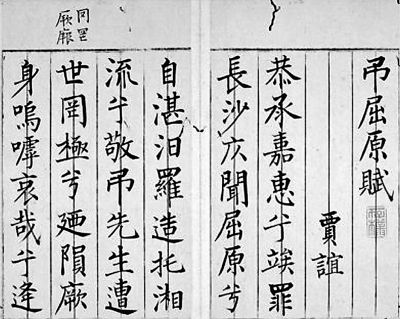 弔屈原賦
賈誼
恭承嘉惠兮竢罪
長沙仄聞屈原兮
自湛汨羅造托湘
流兮敬弔先生遭
世罔極兮迺隕厥
身嗚嘑哀哉兮逢